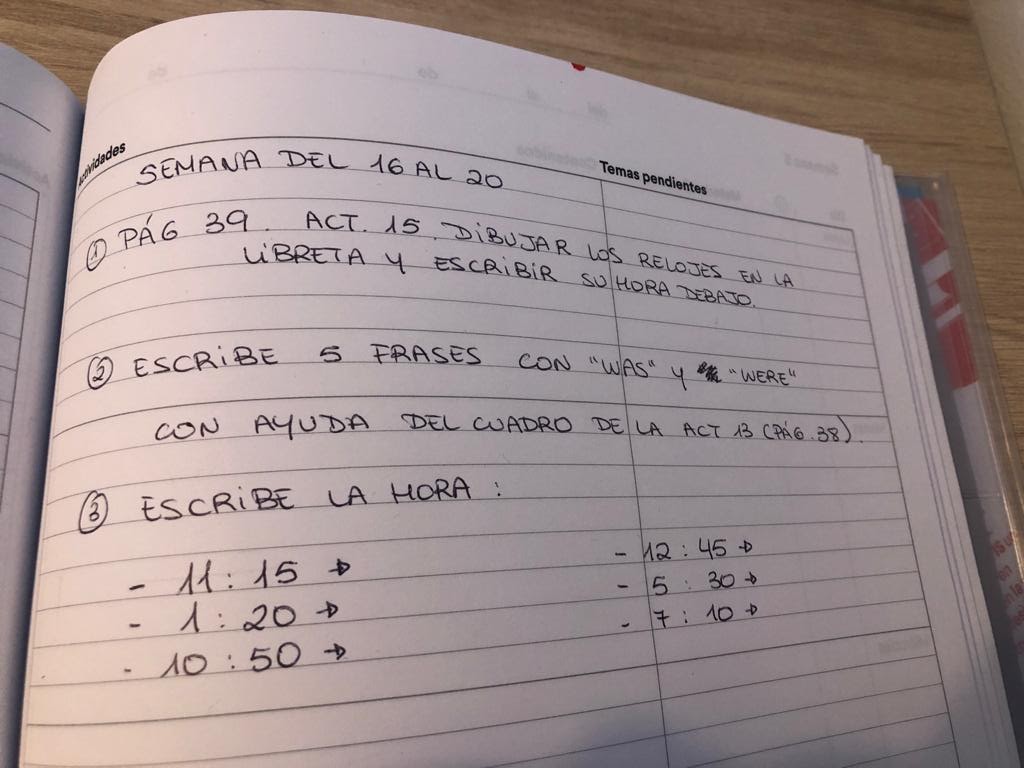 Actividades
Temas pendientes
SEMANA DEL 16 AL 20
① PÁG 39. ACT. 15. DIBUJAR LOS RELOJES EN LA
LIBRETA Y ESCRIBIR SU HORA DEBAJO.
② ESCRIBE 5 FRASES CON "WAS" Y "WERE"
CON AYUDA DEL CUADRO DE LA ACT 13 (PÁG. 38).
③ ESCRIBE LA HORA :
- 11 : 15 →
- 1 : 20 →
- 10 : 50 →
- 12 : 45 →
- 5 : 30 →
- 7 : 10 →